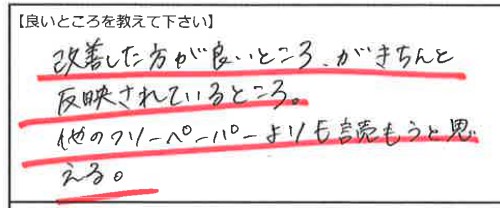 【良いところを教えて下さい】
改善した方が良いところ、がきちんと
反映されているところ。
他のフリーペーパーよりも読もうと思
える。